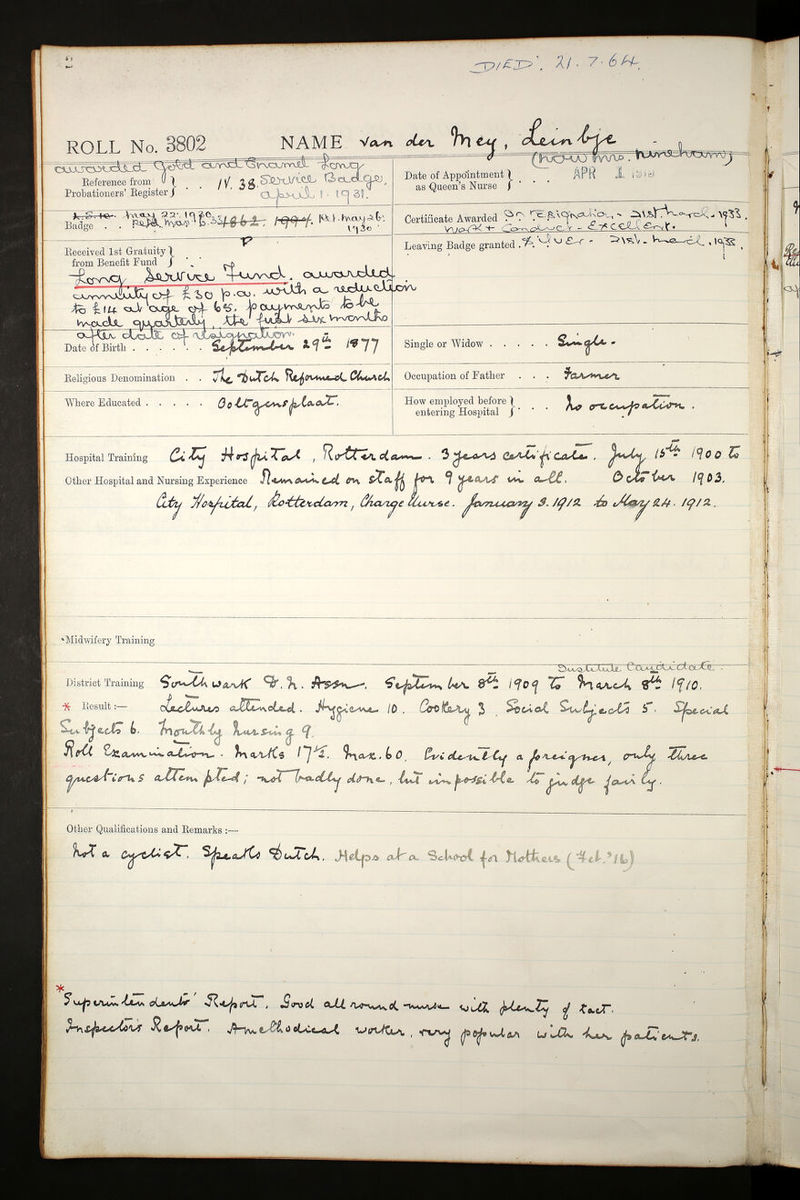 2
DIED. 21. 7. 64.
ROLL No. 3802 NAME Van der Mey, Leintje
(now Mrs.
awarded Gold and Enamel Long
Service Badge,
April 1. 1931.
Reference from Probationers' Register IV. 38.
Date of Appointment as Queen's Nurse APR 1
Badge
Certificate Awarded On resignation - 31st. March. 1933.
Work + Conduct - Excellent.
Received 1st Gratuity from Benefit Fund
Leaving Badge granted. Yes - 31st. March. 1933.
Long Service Fund. awarded
annuity of £30 p.a. with a reduction
to £14 at age of 65. payments to be
made quarterly, the first six months
after date of resignation.
Date of Birth September 29th 1877
Single or Widow Single -
Religious Denomination The Dutch Reformed Church
Occupation of Father Farmer
Where Educated Ooltgensplaat.
How employed before entering Hospital No occupation.
Hospital Training City Hospital, Rotterdam. 3 years certificate. July 15th 1900 to
Other Hospital and Nursing Experience Remained on staff for 9 years in all. October 1903.
City Hospital, Rotterdam, Charge Nurse. January 3. 1912 to May 24. 1912.
Midwifery Training
Substitute Candidate.
District Training Southwark D. N. Assn. September 8th 1909 to March 8th 1910.
* Result:— Lectures attended. Hygiene 10. Cookery 3. Social Subjects 5. Special
Subjects 6. Monthly Nursing 9.
Roll Examination. Marks 17½. Max. 60. Evidently a foreigner, only three
questions attempted; not badly done, but impossible to judge fairly.
Other Qualifications and Remarks:—
Not a cyclist. Speaks Dutch. Helps at a School for Mothers (Feb. '16)
* Superintendents' Report. Good all round nurse with plenty of tact.
Inspectors Report. A methodical worker, very popular with her patients.